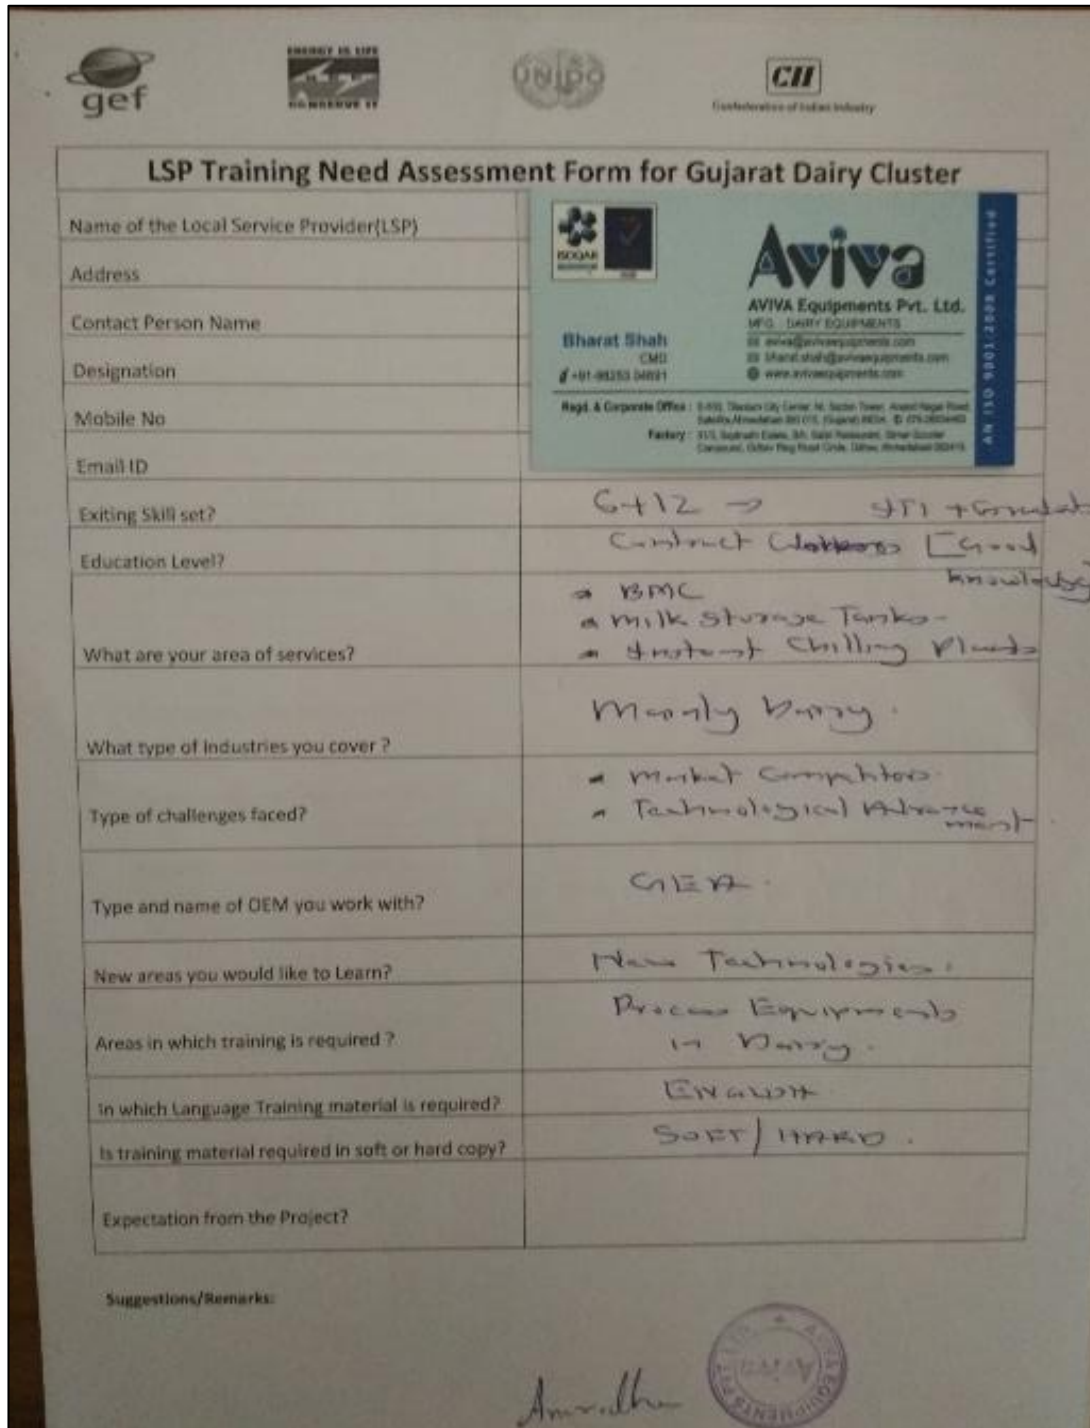 gef
ENERGY IS LIFE
BEE
CONSERVE IT
UNIDO
CII
Confederation of Indian Industry
LSP Training Need Assessment Form for Gujarat Dairy Cluster
Name of the Local Service Provider(LSP)
Address
Contact Person Name
Designation
Mobile No
Email ID
ISOQAR
Aviva
AVIVA Equipments Pvt. Ltd.
MFG. DAIRY EQUIPMENTS
Bharat Shah
CMD
aviva@avivaequipments.com
bharat.shah@avivaequipments.com
www.avivaequipments.com
Regd. & Corporate Office :
Factory :
AN ISO 9001:2008 Certified
Exiting Skill set?
6+12 → ITI +
Education Level?
Contract [Good
knowledge]
What are your area of services?
BMC
Milk Storage Tanks
Instant Chilling Plants
What type of Industries you cover ?
Mainly Dairy.
Type of challenges faced?
Market Competitors.
Technological Advance
ment.
Type and name of OEM you work with?
GEA.
New areas you would like to Learn?
New Technologies.
Areas in which training is required ?
Process Equipments
in Dairy.
In which Language Training material is required?
ENGLISH.
Is training material required in soft or hard copy?
SOFT/HARD.
Expectation from the Project?
Suggestions/Remarks:
Aviva